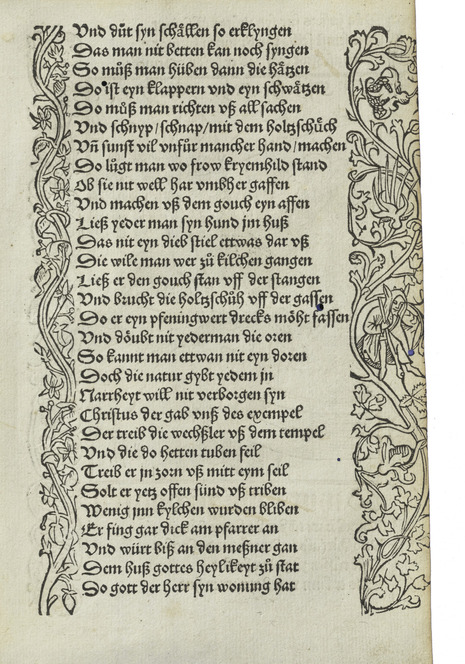 Vnd důt syn schällen so erklyngen
Das man nit betten kan noch syngen
So můß man hüben dann die hätzen
Do ist eyn klappern vnd eyn schwätzen
Do můß man richten vß all sachen
Vnd schnyp/schnap/mit dem holtzschůch
Vn̄ sunst vil vnfůr mancher hand/machen
Do lůgt man wo frow kryemhild stand
Ob sie nit well har vmbher gaffen
Vnd machen vß dem gouch eyn affen
Ließ yeder man syn hund jm huß
Das nit eyn dieb stiel ettwas dar vß
Die wile man wer zů kilchen gangen
Ließ er den gouch stan vff der stangen
Vnd brucht die holtzschůh vff der gassen
Do er eyn pfeningwert drecks möht fassen
Vnd döubt nit yederman die oren
So kannt man ettwan nit eyn doren
Doch die natur gybt yedem jn
Narrheyt will nit verborgen syn
Christus der gab vnß des exempel
Der treib die wechßler vß dem tempel
Vnd die do hetten tuben feil
Treib er jn zorn vß mitt eym seil
Solt er yetz offen sünd vß triben
Wenig jnn kylchen wurden bliben
Er fing gar dick am pfarrer an
Vnd würt biß an den meßner gan
Dem huß gottes heylikeyt zů stat
Do gott der herr syn wonung hat